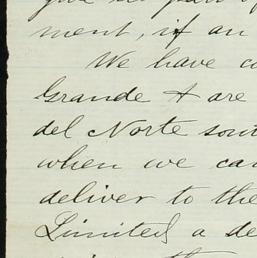 ment, if an
We have co
Grande & are
del Norte sout
when we can
deliver to the
Limited a de